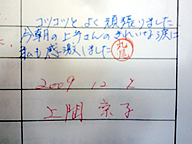 コツコツとよく頑張りました
今朝の上手さんのきれいな涙に
私も感激しました
2009 12 2
上間 京子